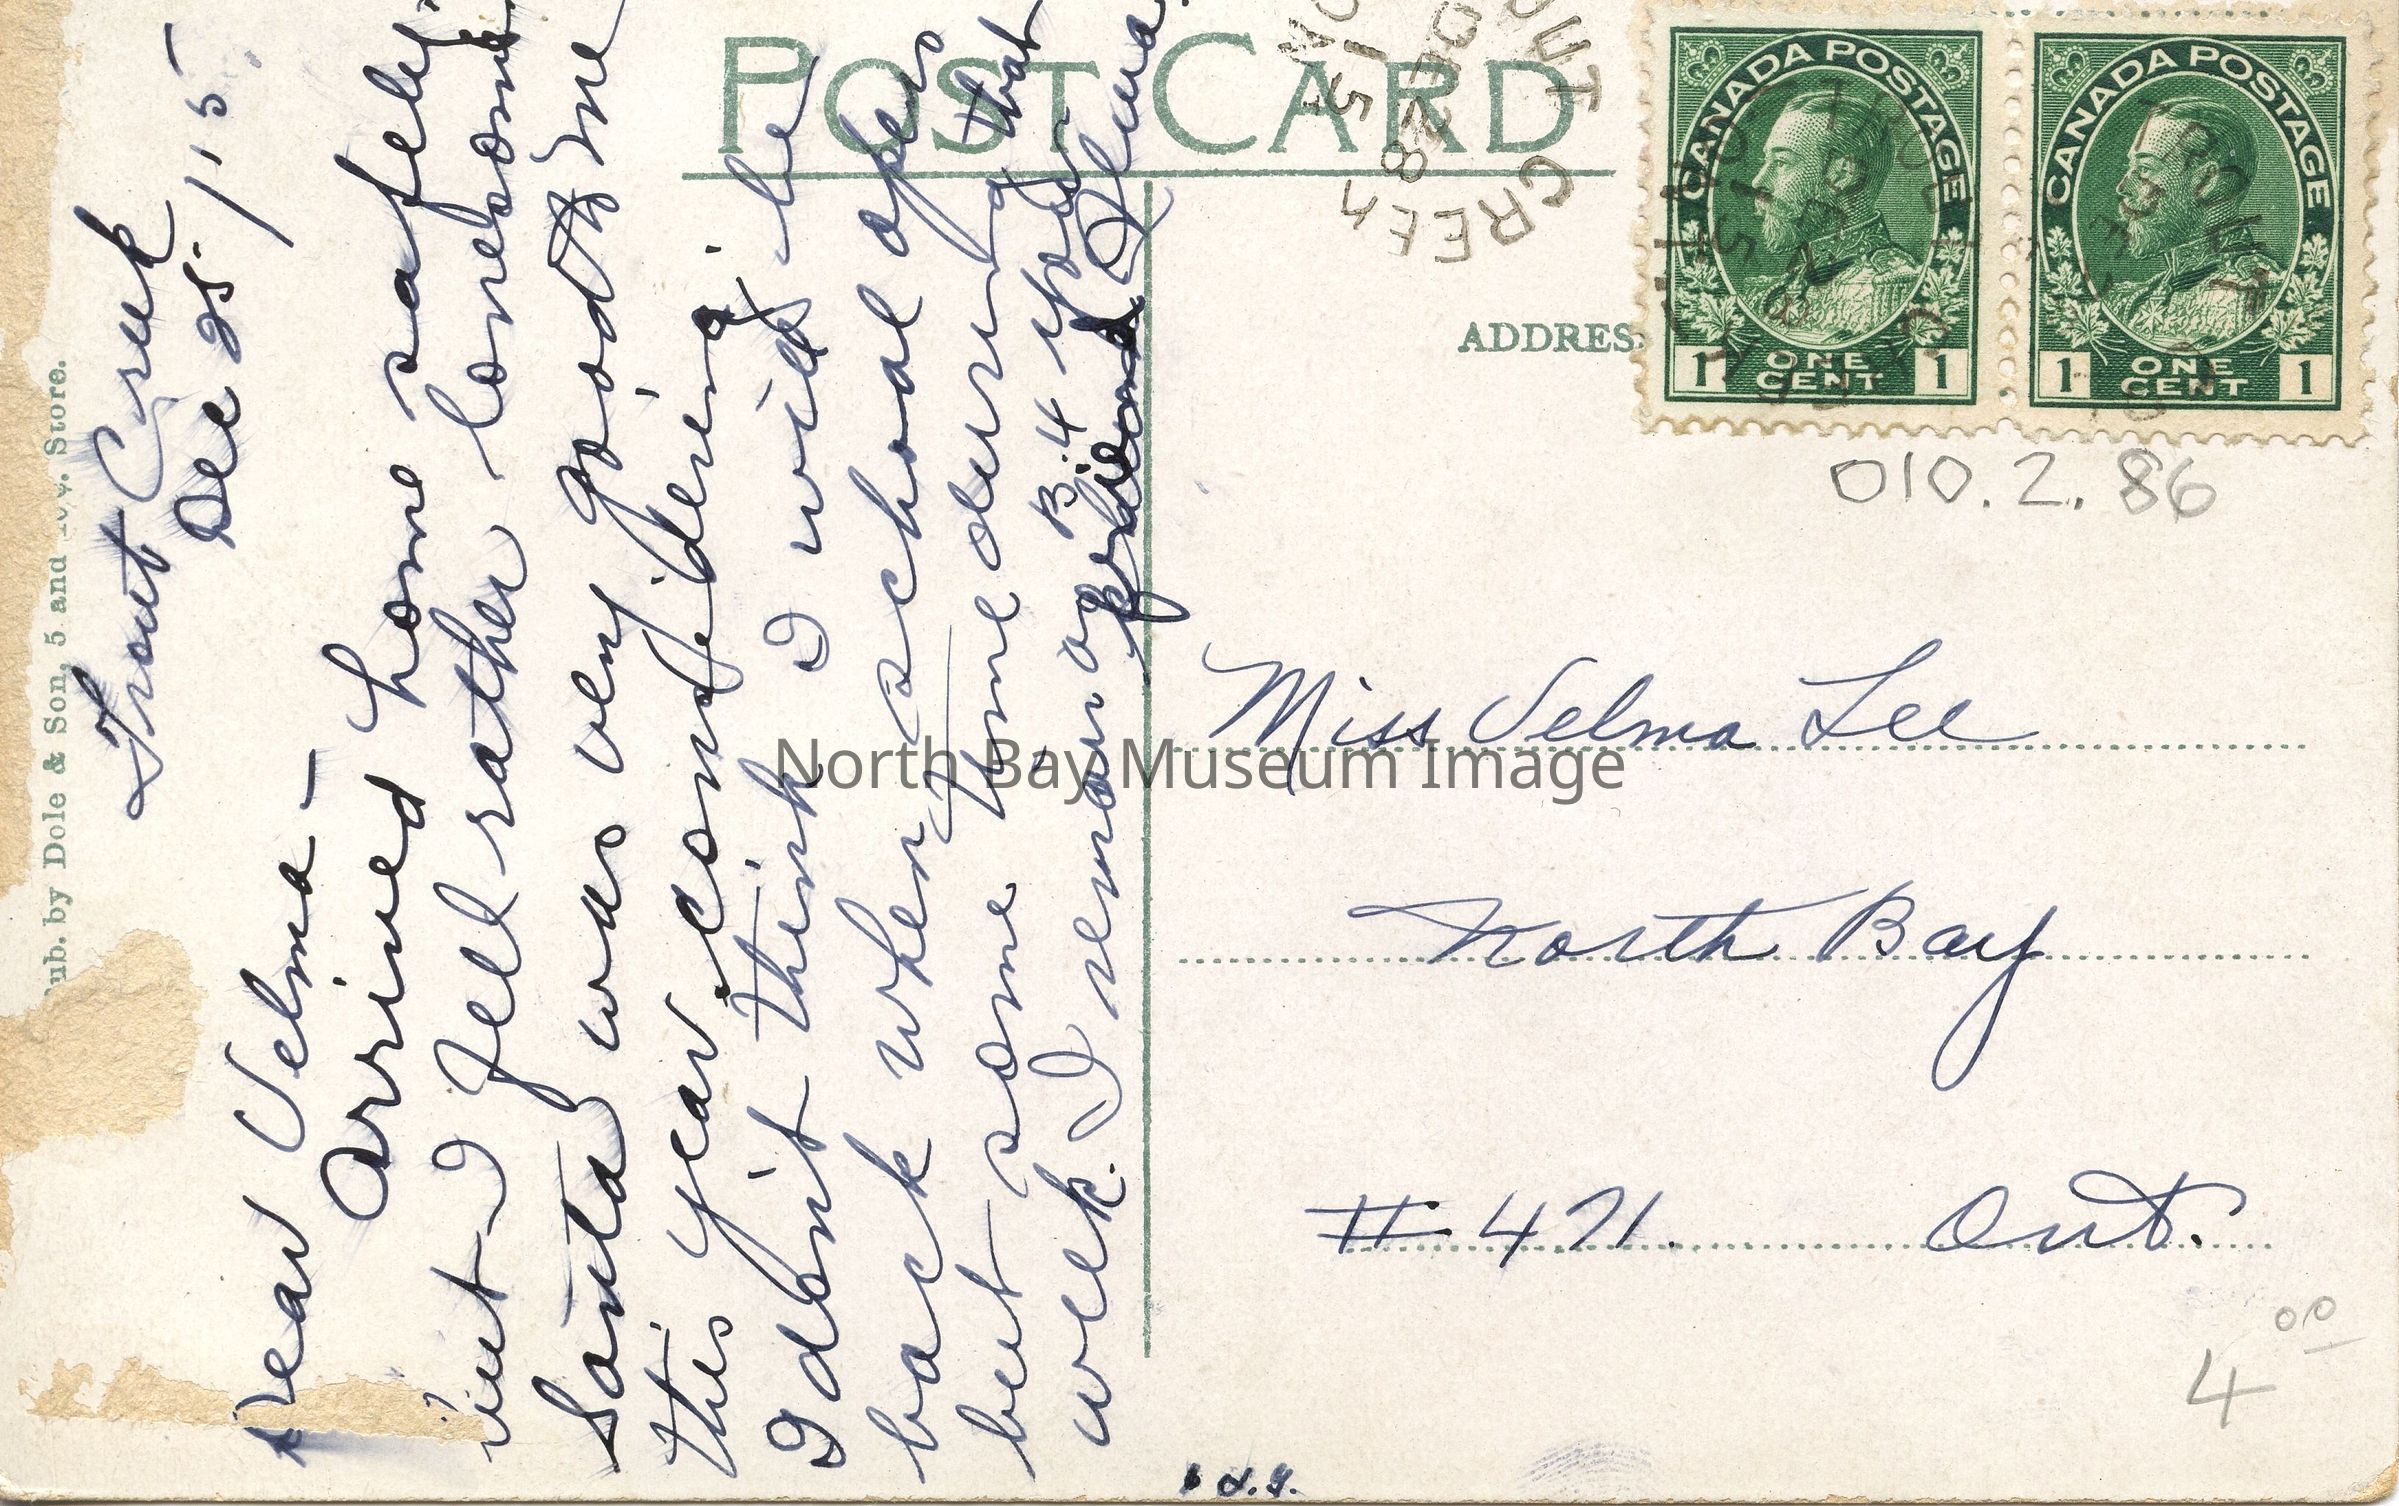 POST CARD
TROUT CREEK
DE 28
15
CANADA POSTAGE
1 ONE CENT 1
CANADA POSTAGE
1 ONE CENT 1
ADDRES
010.2.86
Miss Velma Lee
North Bay
# 471. Ont.
4 00
North Bay Museum Image
ub. by Dole & Son, 5 and 10/. Store.
Trout Creek
Dec 25. /15-
Dear Velma -
Arrived home safely
but I fell rather lonesome.
Santa was very good to me
this year, considering.
I don't think I will be
back when school opens
but some time during that
week. I remain as B.4 your
friend